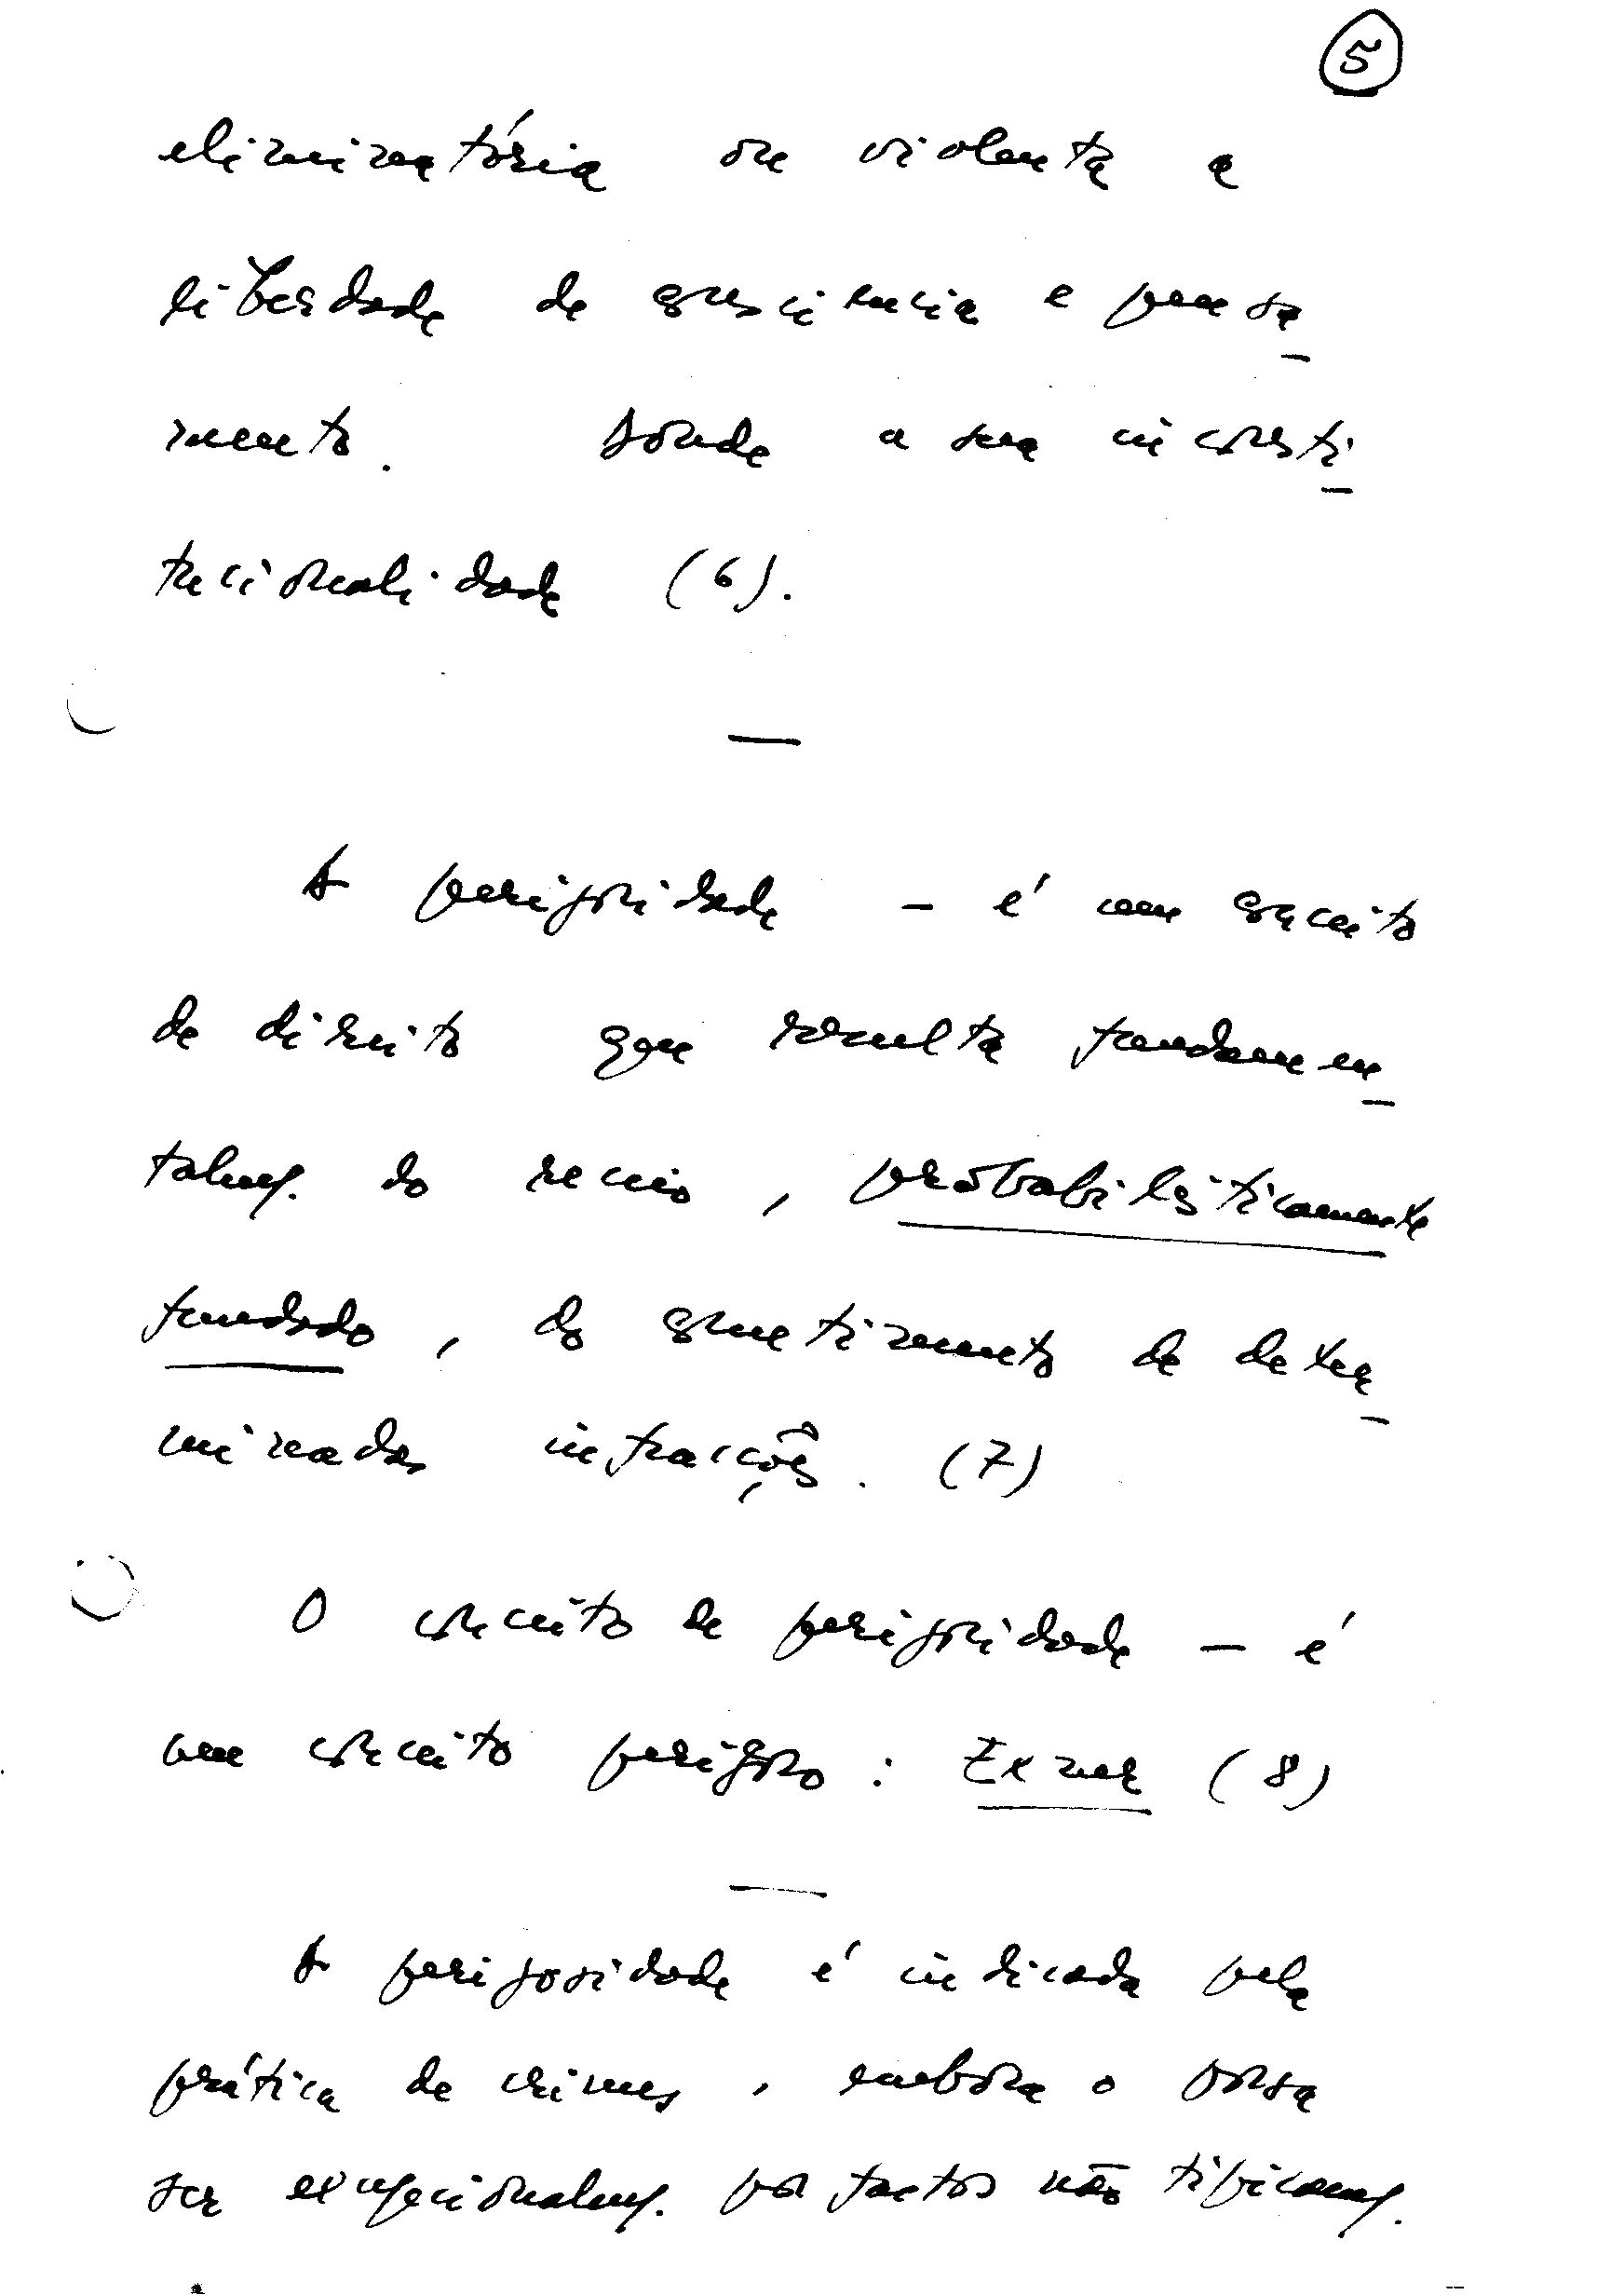 5
eliminatória ou violenta a
liberdade de consciencia e pensa
mento. Donde a sua inconsti
tucionalidade (6).
—
A perigosidade – é um conceito
de direito que resulta fundamen
talmy. do receio, probabilisticamente
fundado, do cometimento de deter
minadas infracções. (7)
O conceito de perigosidade – é
um conceito perigoso : Exner (8)
—
A perigosidade é indicada pela
prática de crimes, embora o possa
ser excepcionalmy. por factos não tipicamy.